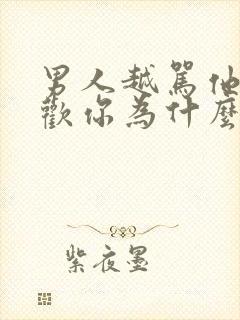 男人越駡他
歡你為什麼
紫夜墨